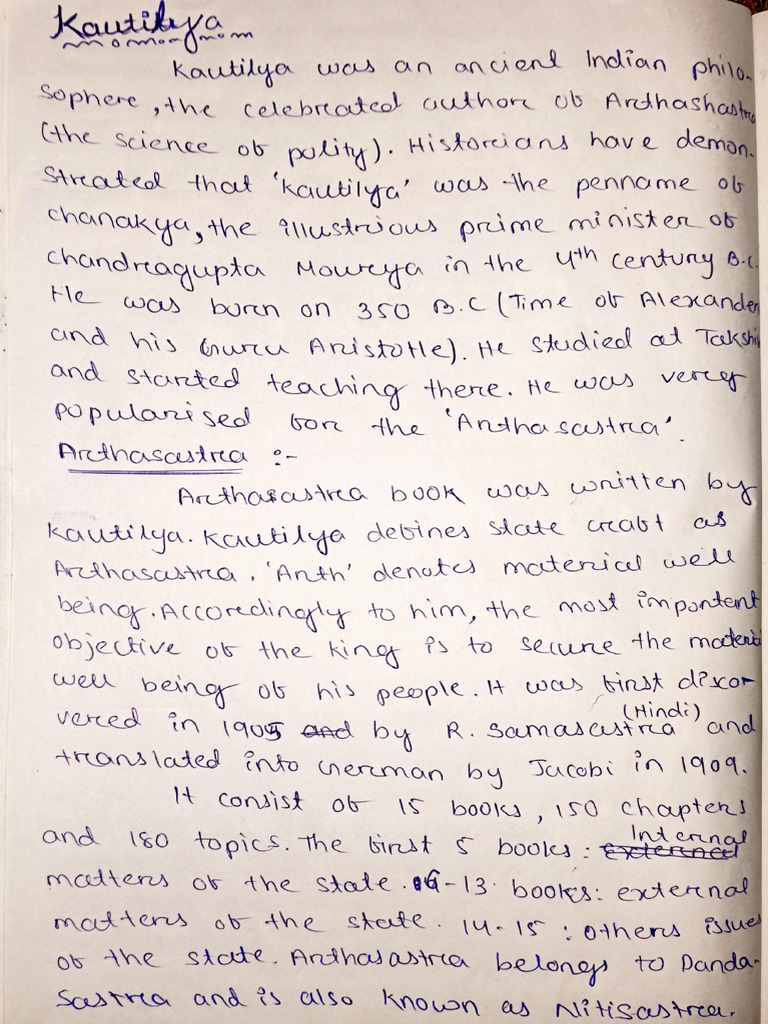 Kautilya
Kautilya was an ancient Indian philo-
sophere, the celebreated authore of Arcthashastra
(the science of polity). Historcians have demon-
streated that 'kautilya' was the penname of
chanakya, the illustrious prime minister of
chandreagupta Mowreya in the 4th century B.C.
He was born on 350 B.C (Time of Alexander
and his Guru Aristotle). He studied at Takshi
and started teaching there. He was verey
popularised fore the 'Arthasastra'.
Arcthasastrea :-
Arcthasastrea book was written by
Kautilya. Kautilya defines state craft as
Arcthasastrea. 'Arth' denotes material well
being. Accoredingly to him, the most important
objective of the king is to secure the material
well being of his people. It was first discor
vered in 1905 and by R. Samasastrea (Hindi) and
translated into German by Jacobi in 1909.
It consist of 15 books, 150 chapters
and 180 topics. The first 5 books: external Internal
matters of the state. 6-13 books: external
matters of the state. 14-15: others issues
of the state. Arthasastrea belongs to Danda-
Sastrea and is also known as Nitisastrea.